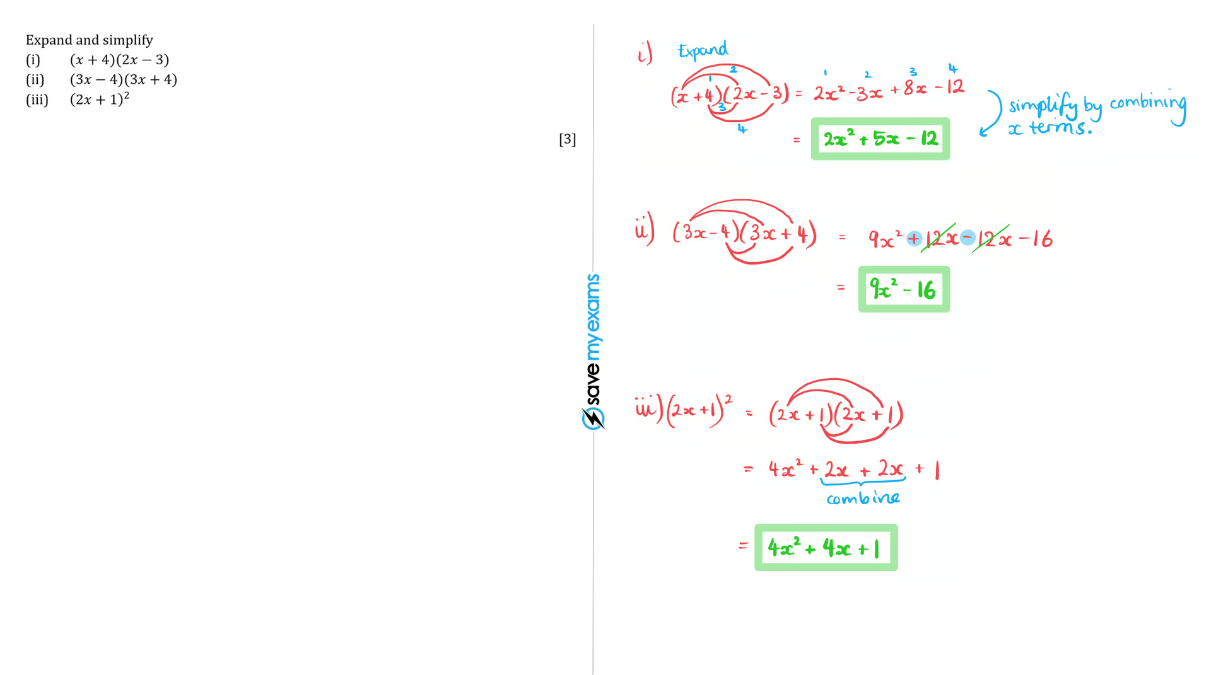 Expand and simplify
(i) (x + 4)(2x − 3)
(ii) (3x − 4)(3x + 4)
(iii) (2x + 1)²
[3]
savemyexams
i) Expand
1 2 3 4
(x + 4)(2x - 3) = 2x² - 3x + 8x - 12
1 2 3 4
simplify by combining
x terms.
= 2x² + 5x - 12
ii) (3x - 4)(3x + 4) = 9x² + 12x - 12x - 16
= 9x² - 16
iii) (2x + 1)² = (2x + 1)(2x + 1)
= 4x² + 2x + 2x + 1
combine
= 4x² + 4x + 1